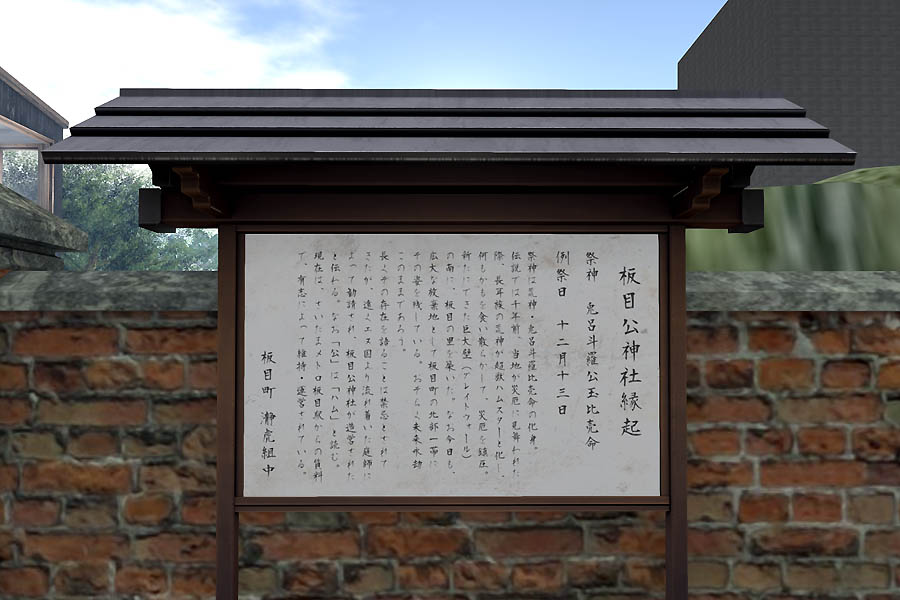 板目公神社縁起
祭神　兎呂斗羅公玉比売命
例祭日　十二月十三日
祭神は荒神・兎呂斗羅比売命の化身。
伝説では千年前、当地が災厄に見舞われた
際、長耳族の荒神が超獣ハムスターと化し、
何もかもを食い散らかして、災厄を鎮圧。
新たにできた巨大壁（グレイトウォール）
の南に、板目の里を築いた。なお今日も、
広大な牧草地として板目町の北部一帯に
その姿を残している。おそらく未来永劫
このままであろう。
長くその存在を語ることは禁忌とされて
きたが、遠くエス国より流れ着いた庭師に
よって勧請され、板目公神社が造営された
と伝わる。なお「公」は「ハム」と読む。
現在は、さいたまメトロ板目駅からの賃料
で、有志によって維持・運営されている。
板目町　瀞虎組中